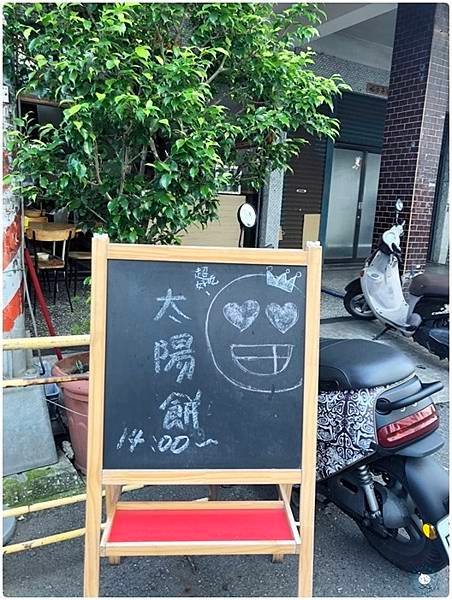 超好吃
太陽餅
14:00~